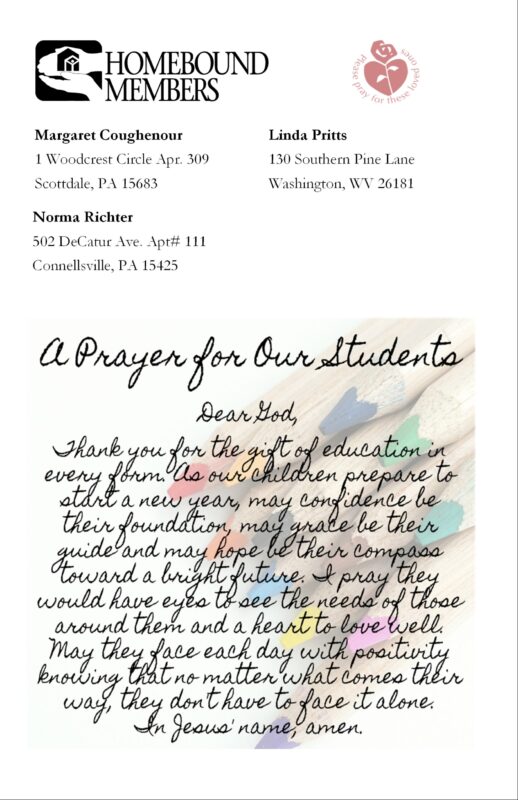 HOMEBOUND
MEMBERS
Please pray for these loved ones
Margaret Coughenour
1 Woodcrest Circle Apr. 309
Scottdale, PA 15683
Linda Pritts
130 Southern Pine Lane
Washington, WV 26181
Norma Richter
502 DeCatur Ave. Apt# 111
Connellsville, PA 15425
A Prayer for Our Students
Dear God,
Thank you for the gift of education in
every form. As our children prepare to
start a new year, may confidence be
their foundation, may grace be their
guide and may hope be their compass
toward a bright future. I pray they
would have eyes to see the needs of those
around them and a heart to love well.
May they face each day with positivity
knowing that no matter what comes their
way, they don't have to face it alone.
In Jesus' name, amen.